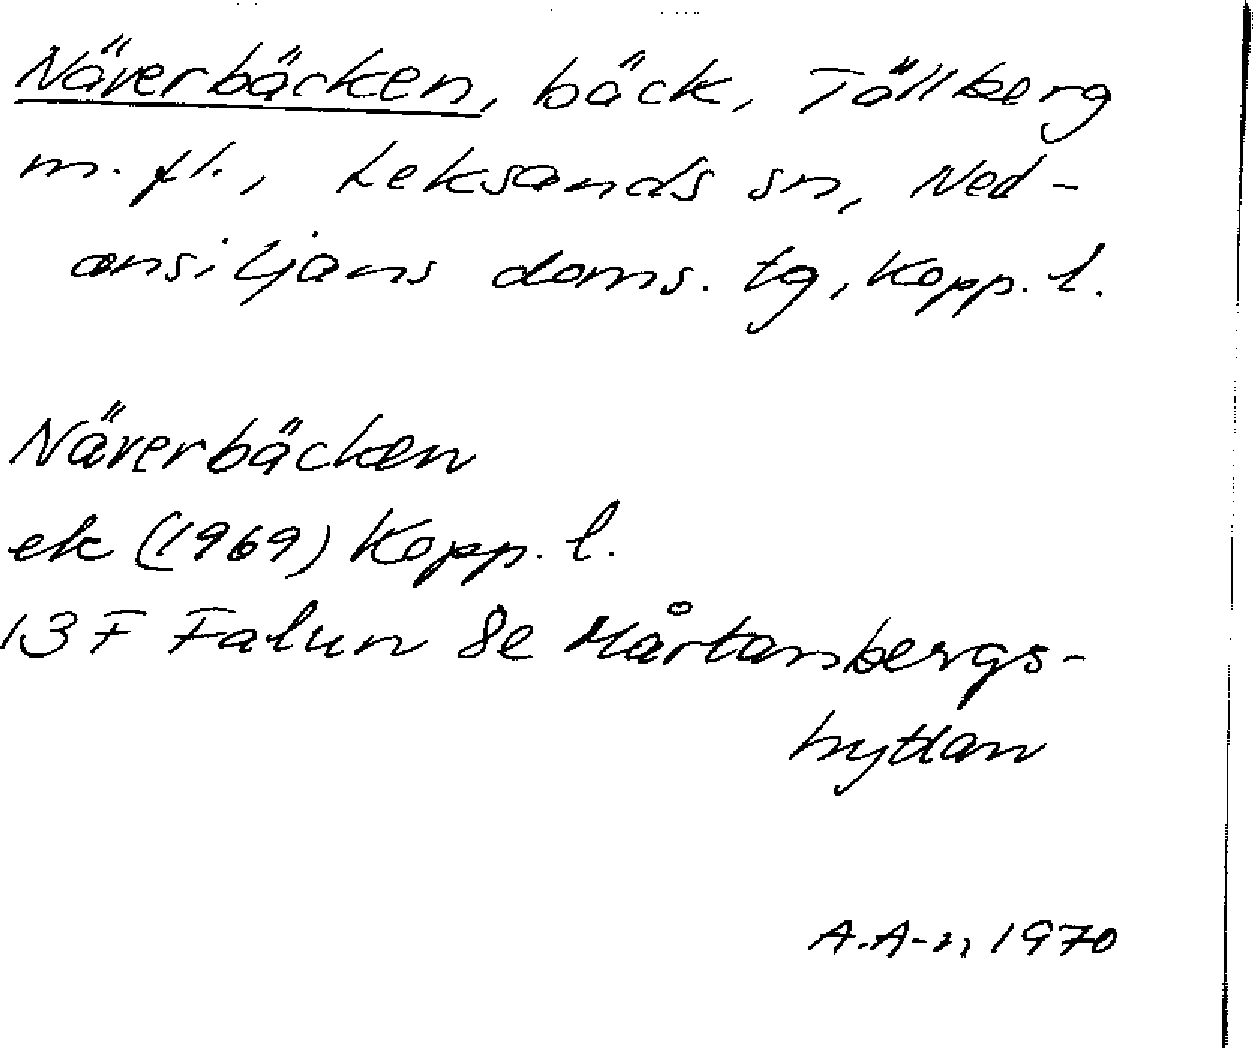 Näverbäcken, bäck, Tällberg
m. fl., Leksands sn, Ned-
ansiljans doms. tg, Kopp. l.
Näverbäcken
ek (1969) Kopp. l.
13 F Falun 8e Mårtanbergs-
hyttan
A.A-n, 1970